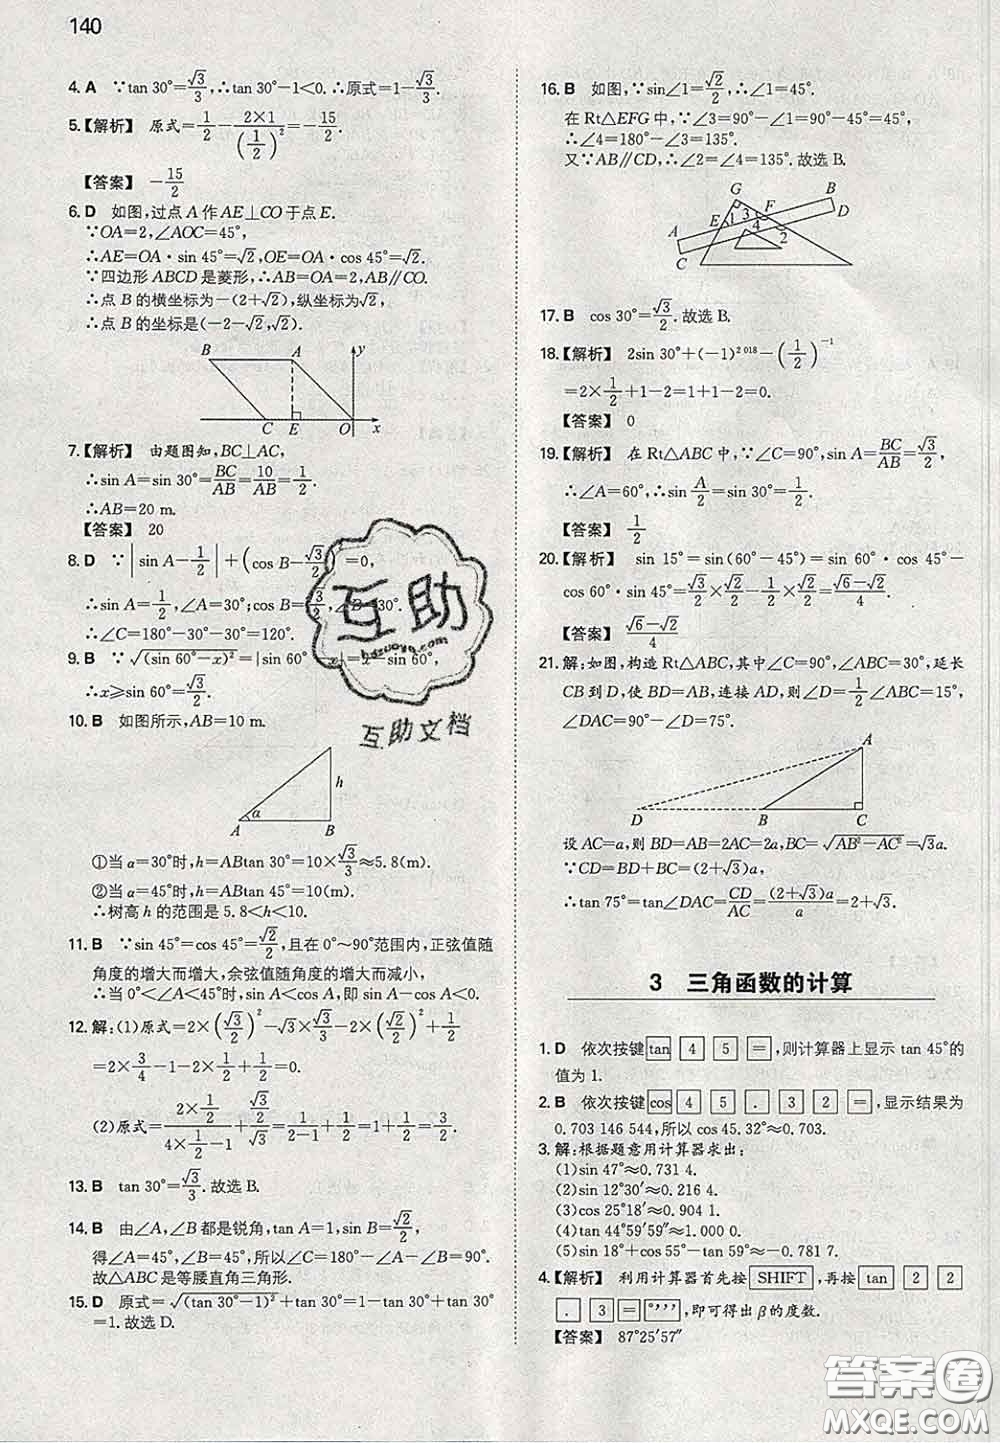 140
4. A ∵tan 30°=√3/3,∴tan 30°-1<0.∴原式=1-√3/3.
5.【解析】 原式=1/2-2×1/(1/2)²=-15/2.
【答案】 -15/2
6. D 如图,过点 A 作 AE⊥CO 于点 E.
∵OA=2,∠AOC=45°,
∴AE=OA·sin 45°=√2,OE=OA·cos 45°=√2.
∵四边形 ABCD 是菱形,∴AB=OA=2,AB∥CO.
∴点 B 的横坐标为-(2+√2),纵坐标为√2.
∴点 B 的坐标是(-2-√2,√2).
B A y
C E O x
7.【解析】 由题图知,BC⊥AC,
∴sin A=sin 30°=BC/AB=10/AB=1/2.
∴AB=20 m.
【答案】 20
8. D ∵|sin A-1/2|+(cos B-√3/2 =0,
∴sin A=1/2,∠A=30°;cos B=√3/2,∠B=30°.
∴∠C=180°-30°-30°=120°.
9. B ∵√(sin 60°-x)²=|sin 60° |= -sin 60°,
∴x≥sin 60°=√3/2.
10. B 如图所示,AB=10 m.
h
α
A B
①当 α=30°时,h=ABtan 30°=10×√3/3≈5.8(m).
②当 α=45°时,h=ABtan 45°=10(m).
∴树高 h 的范围是 5.8<h<10.
11. B ∵sin 45°=cos 45°=√2/2,且在 0°~90°范围内,正弦值随
角度的增大而增大,余弦值随角度的增大而减小,
∴当 0°<∠A<45°时,sin A<cos A,即 sin A-cos A<0.
12. 解:(1)原式=2×(√3/2)²-√3×√3/3-2×(√2/2)²+1/2
=2×3/4-1-2×1/2+1/2=0.
(2)原式=(2×1/2)/(4×1/2-1)+(√3/2)/√3=1/(2-1)+1/2=1+1/2=3/2.
13. B tan 30°=√3/3.故选 B.
14. B 由∠A,∠B 都是锐角,tan A=1,sin B=√2/2,
得∠A=45°,∠B=45°,所以∠C=180°-∠A-∠B=90°.
故△ABC 是等腰直角三角形.
15. D 原式=√(tan 30°-1)²+tan 30°=1-tan 30°+tan 30°
=1.故选 D.
16. B 如图,∵sin∠1=√2/2,∴∠1=45°.
在 Rt△EFG 中,∵∠3=90°-∠1=90°-45°=45°,
∴∠4=180°-∠3=135°.
又∵AB∥CD,∴∠2=∠4=135°.故选 B.
G B
E 1 3 F D
A 4 2
C
17. B cos 30°=√3/2.故选 B.
18.【解析】 2sin 30°+(-1)²⁰¹⁸-(1/2)⁻¹
=2×1/2+1-2=1+1-2=0.
【答案】 0
19.【解析】 在 Rt△ABC 中,∵∠C=90°,sin A=BC/AB=√3/2,
∴∠A=60°,∴sin A/2=sin 30°=1/2.
【答案】 1/2
20.【解析】 sin 15°=sin(60°-45°)=sin 60°·cos 45°-
cos 60°·sin 45°=√3/2×√2/2-1/2×√2/2=(√6-√2)/4.
【答案】 (√6-√2)/4
21. 解:如图,构造 Rt△ABC,其中∠C=90°,∠ABC=30°,延长
CB 到 D,使 BD=AB,连接 AD,则∠D=1/2∠ABC=15°,
∠DAC=90°-∠D=75°.
A
D B C
设 AC=a,则 BD=AB=2AC=2a,BC=√AB²-AC²=√3a.
∵CD=BD+BC=(2+√3)a,
∴tan 75°=tan∠DAC=CD/AC=(2+√3)a/a=2+√3.
3 三角函数的计算
1. D 依次按键 tan 4 5 =,则计算器上显示 tan 45°的
值为 1.
2. B 依次按键 cos 4 5 . 3 2 =,显示结果为
0.703 146 544,所以 cos 45.32°≈0.703.
3. 解:根据题意用计算器求出:
(1)sin 47°≈0.731 4.
(2)sin 12°30′≈0.216 4.
(3)cos 25°18′≈0.904 1.
(4)tan 44°59′59″≈1.000 0.
(5)sin 18°+cos 55°-tan 59°≈-0.781 7.
4.【解析】 利用计算器首先按 SHIFT ,再按 tan 2 2
. 3 = °′″,即可得出 β 的度数.
【答案】 87°25′57″
互助
hdzuoye.com
互助文档
答案圈
MXQE.COM